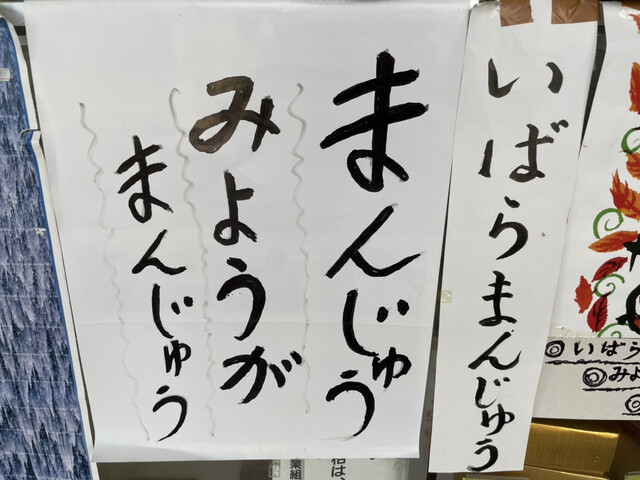 いばらまんじゅう
まんじゅう
みょうが
まんじゅう
◎いばら
◎みよ
業組